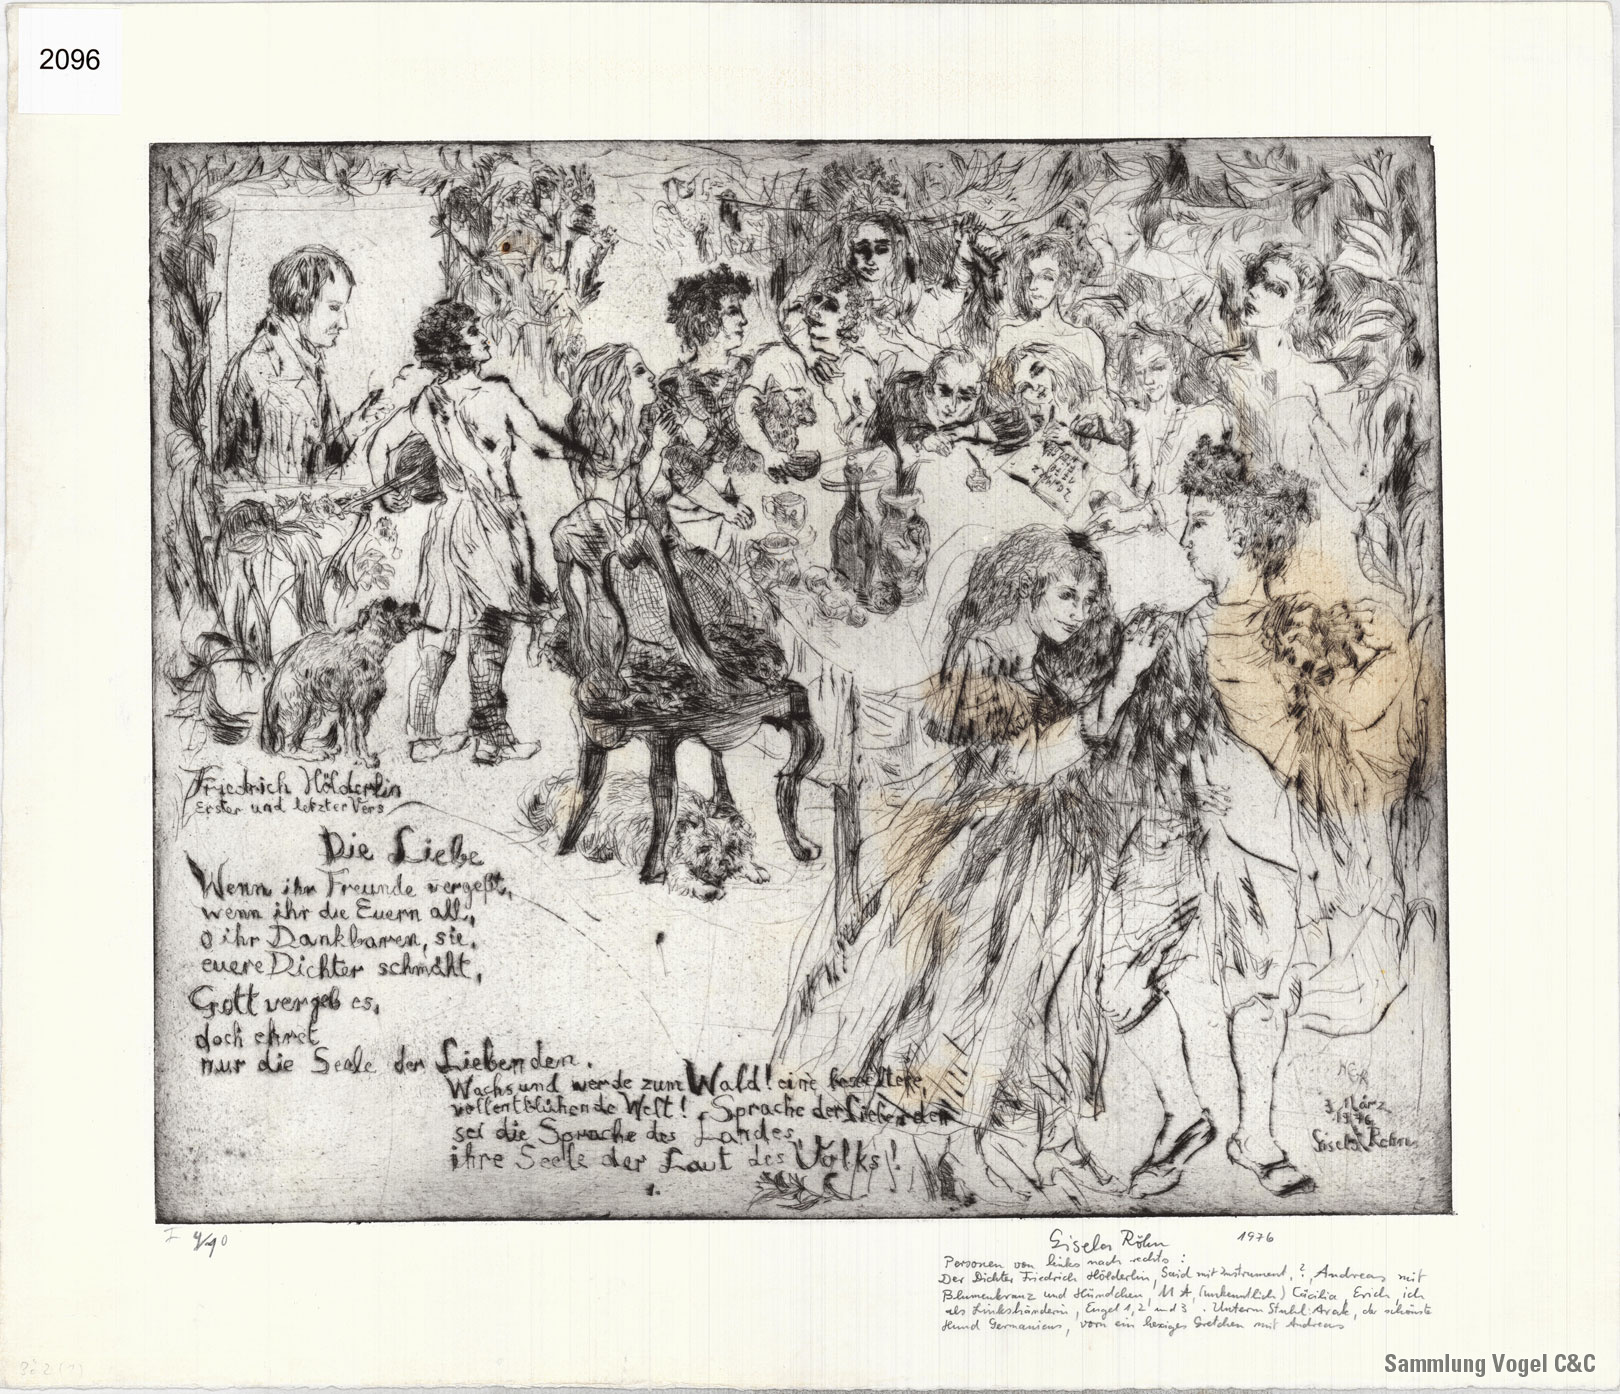 2096
Friedrich Hölderlin
Erster und letzter Vers
Die Liebe
Wenn ihr Freunde vergeßt,
wenn ihr die Euern all,
o ihr Dankbaren, sie,
euere Dichter schmäht,
Gott vergeb es,
doch ehret
nur die Seele der Liebenden.
Wachs und werde zum Wald! eine beseeltere,
vollentblühende Welt! Sprache der Liebenden
sei die Sprache des Landes,
ihre Seele der Laut des Volks!
3. März
1976
Gisela Röhn
I 4/40
Gisela Röhn 1976
Personen von links nach rechts:
Der Dichter Friedrich Hölderlin, Said mit Instrument, ?, Andreas mit
Blumenkranz und Hündchen, M A, (unkenntlich) Cäcilia, Erich, ich
als Linkshänderin, Engel 1, 2 und 3. Unterm Stuhl: Arak, der schönste
Hund Germaniens, vorn ein hexiges Gretchen mit Andreas
Sammlung Vogel C&C